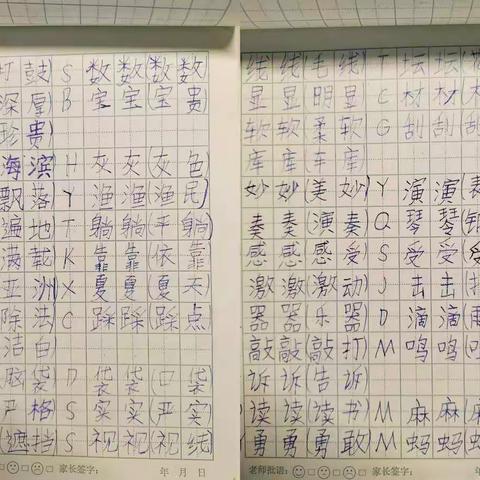 打鼓 S 数 数(数 数
深厚 B 宝 宝(宝 贵)
珍贵)
海滨 H 灰 灰(灰 色
飘落 Y 渔 渔(渔 民)
遍地 T 躺 躺(平 躺)
满载 K 靠 靠(依 靠
亚洲 X 夏 夏(夏 天)
除法 C 踩 踩(踩 点
洁白
脑袋 D 袋 袋(口 袋
严格 S 实 实(严 实)
(遮挡 S 视 视(视 线
家长签字: 年 月 日
线 线(毛 线) T 坛 坛
显 显(明 显 C 材 材
软 软(柔 软 G 刮 刮
库 库(车 库)
妙 妙(美 妙) Y 演 演(表
奏 奏(演 奏 Q 琴 琴
感 感(感 受 S 受 受
激 激(激 动 J 击 击(打
器 器(乐 器) D 滴 滴(雨
敲 敲(敲 打 M 鸣 鸣
诉 诉(告 诉
读 读(读 书 M 麻 麻(麻
勇 勇(勇 敢) M 蚂 蚂
老师批语: 家长签字: 年